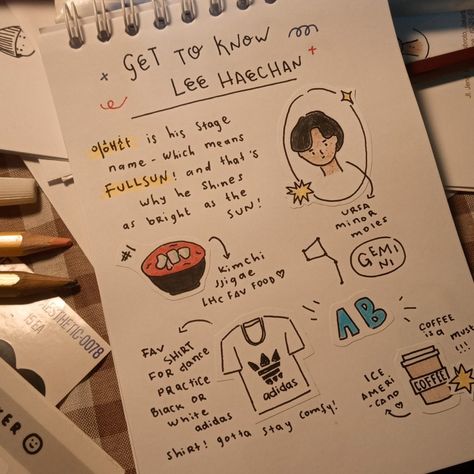 GET TO KNOW
LEE HAECHAN
이해찬 is his stage
name - which means
FULLSUN! and that's
why he shines
as bright as the
SUN!
URSA
MINOR
MOLES
GEMI
NI
#1
KIMCHI
JJIGAE
LHC FAV FOOD ♡
AB
FAV SHIRT
FOR dance
PRACTICE
BLACK OR
white
adidas
SHIRT! gotta stay comfy!
adidas
COFFEE
is a must
!!!
ICE
AMERI
-CANO
COFFEE
ESTHETIC-0078
15 EA
KER